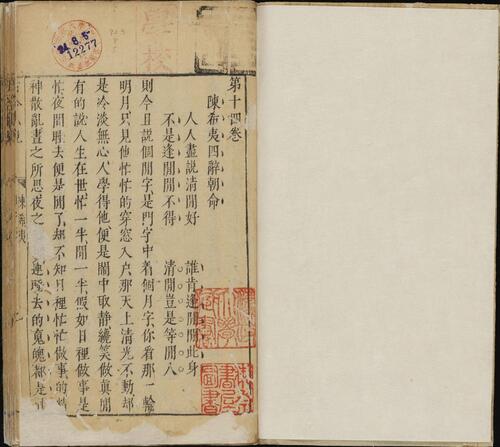 第十四卷
陳希夷四辭朝命
人人盡說清閒好　誰肯逢閒閒此身
不是逢閒閒不得　清閒豈是等閒人
則今且說個閒字是門字中着個月字你看那一輪
明月只見他忙忙的穿窓入戶那天上清光不動却
是冷淡無心人學得他便是鬧中取靜纔笑做眞閒
有的說人生在世忙一半閒一半假如日裡做事是
忙夜間睡去便是閒了却不知日裡忙忙做事的
神散亂晝之所思夜之 連睡去的寬魄都是
陳希夷
學校
24.8.5
12277